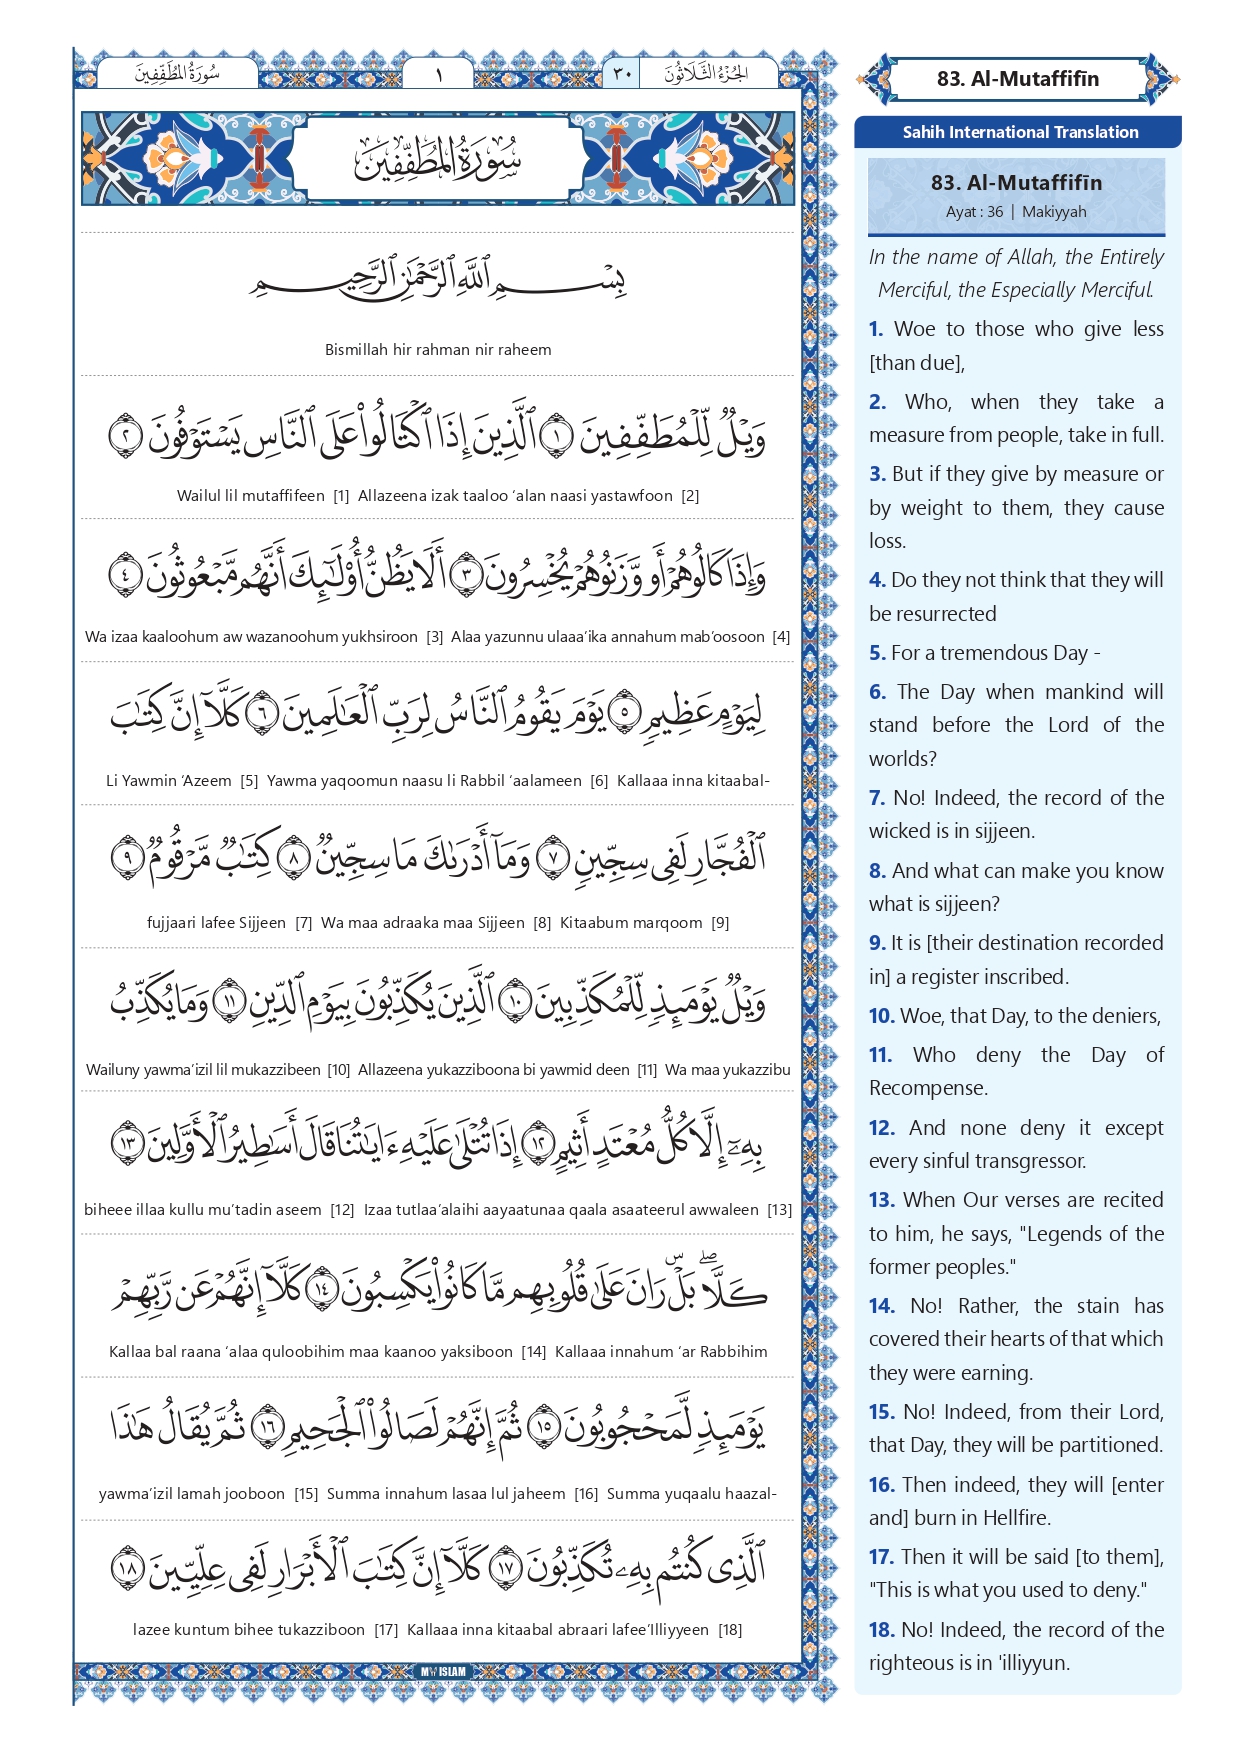 سُورَةُ المُطَفِّفِينَ
١
٣٠
الجُزْءُ الثَّلَاثُونَ
سُورَةُ المُطَفِّفِينَ
بِسْمِ ٱللَّهِ ٱلرَّحْمَٰنِ ٱلرَّحِيمِ
Bismillah hir rahman nir raheem
وَيْلٌ لِّلْمُطَفِّفِينَ ١ ٱلَّذِينَ إِذَا ٱكْتَالُوا۟ عَلَى ٱلنَّاسِ يَسْتَوْفُونَ ٢
Wailul lil mutaffifeen [1] Allazeena izak taaloo ‘alan naasi yastawfoon [2]
وَإِذَا كَالُوهُمْ أَو وَّزَنُوهُمْ يُخْسِرُونَ ٣ أَلَا يَظُنُّ أُو۟لَٰٓئِكَ أَنَّهُم مَّبْعُوثُونَ ٤
Wa izaa kaaloohum aw wazanoohum yukhsiroon [3] Alaa yazunnu ulaaa’ika annahum mab’oosoon [4]
لِيَوْمٍ عَظِيمٍ ٥ يَوْمَ يَقُومُ ٱلنَّاسُ لِرَبِّ ٱلْعَٰلَمِينَ ٦ كَلَّآ إِنَّ كِتَٰبَ
Li Yawmin ‘Azeem [5] Yawma yaqoomun naasu li Rabbil ‘aalameen [6] Kallaaa inna kitaabal-
ٱلْفُجَّارِ لَفِى سِجِّينٍ ٧ وَمَآ أَدْرَىٰكَ مَا سِجِّينٌ ٨ كِتَٰبٌ مَّرْقُومٌ ٩
fujjaari lafee Sijjeen [7] Wa maa adraaka maa Sijjeen [8] Kitaabum marqoom [9]
وَيْلٌ يَوْمَئِذٍ لِّلْمُكَذِّبِينَ ١٠ ٱلَّذِينَ يُكَذِّبُونَ بِيَوْمِ ٱلدِّينِ ١١ وَمَا يُكَذِّبُ
Wailuny yawma’izil lil mukazzibeen [10] Allazeena yukazziboona bi yawmid deen [11] Wa maa yukazzibu
بِهِۦٓ إِلَّا كُلُّ مُعْتَدٍ أَثِيمٍ ١٢ إِذَا تُتْلَىٰ عَلَيْهِ ءَايَٰتُنَا قَالَ أَسَٰطِيرُ ٱلْأَوَّلِينَ ١٣
biheee illaa kullu mu’tadin aseem [12] Izaa tutlaa’alaihi aayaatunaa qaala asaateerul awwaleen [13]
كَلَّا ۖ بَلْ ۜ رَانَ عَلَىٰ قُلُوبِهِم مَّا كَانُوا۟ يَكْسِبُونَ ١٤ كَلَّآ إِنَّهُمْ عَن رَّبِّهِمْ
Kallaa bal raana ‘alaa quloobihim maa kaanoo yaksiboon [14] Kallaaa innahum ‘ar Rabbihim
يَوْمَئِذٍ لَّمَحْجُوبُونَ ١٥ ثُمَّ إِنَّهُمْ لَصَالُوا۟ ٱلْجَحِيمِ ١٦ ثُمَّ يُقَالُ هَٰذَا
yawma’izil lamah jooboon [15] Summa innahum lasaa lul jaheem [16] Summa yuqaalu haazal-
ٱلَّذِى كُنتُم بِهِۦ تُكَذِّبُونَ ١٧ كَلَّآ إِنَّ كِتَٰبَ ٱلْأَبْرَارِ لَفِى عِلِّيِّينَ ١٨
lazee kuntum bihee tukazziboon [17] Kallaaa inna kitaabal abraari lafee’Illiyyeen [18]
MY ISLAM
83. Al-Mutaffifīn
Sahih International Translation
83. Al-Mutaffifīn
Ayat : 36 | Makiyyah
In the name of Allah, the Entirely
Merciful, the Especially Merciful.
1. Woe to those who give less
[than due],
2. Who, when they take a
measure from people, take in full.
3. But if they give by measure or
by weight to them, they cause
loss.
4. Do they not think that they will
be resurrected
5. For a tremendous Day -
6. The Day when mankind will
stand before the Lord of the
worlds?
7. No! Indeed, the record of the
wicked is in sijjeen.
8. And what can make you know
what is sijjeen?
9. It is [their destination recorded
in] a register inscribed.
10. Woe, that Day, to the deniers,
11. Who deny the Day of
Recompense.
12. And none deny it except
every sinful transgressor.
13. When Our verses are recited
to him, he says, "Legends of the
former peoples."
14. No! Rather, the stain has
covered their hearts of that which
they were earning.
15. No! Indeed, from their Lord,
that Day, they will be partitioned.
16. Then indeed, they will [enter
and] burn in Hellfire.
17. Then it will be said [to them],
"This is what you used to deny."
18. No! Indeed, the record of the
righteous is in 'illiyyun.